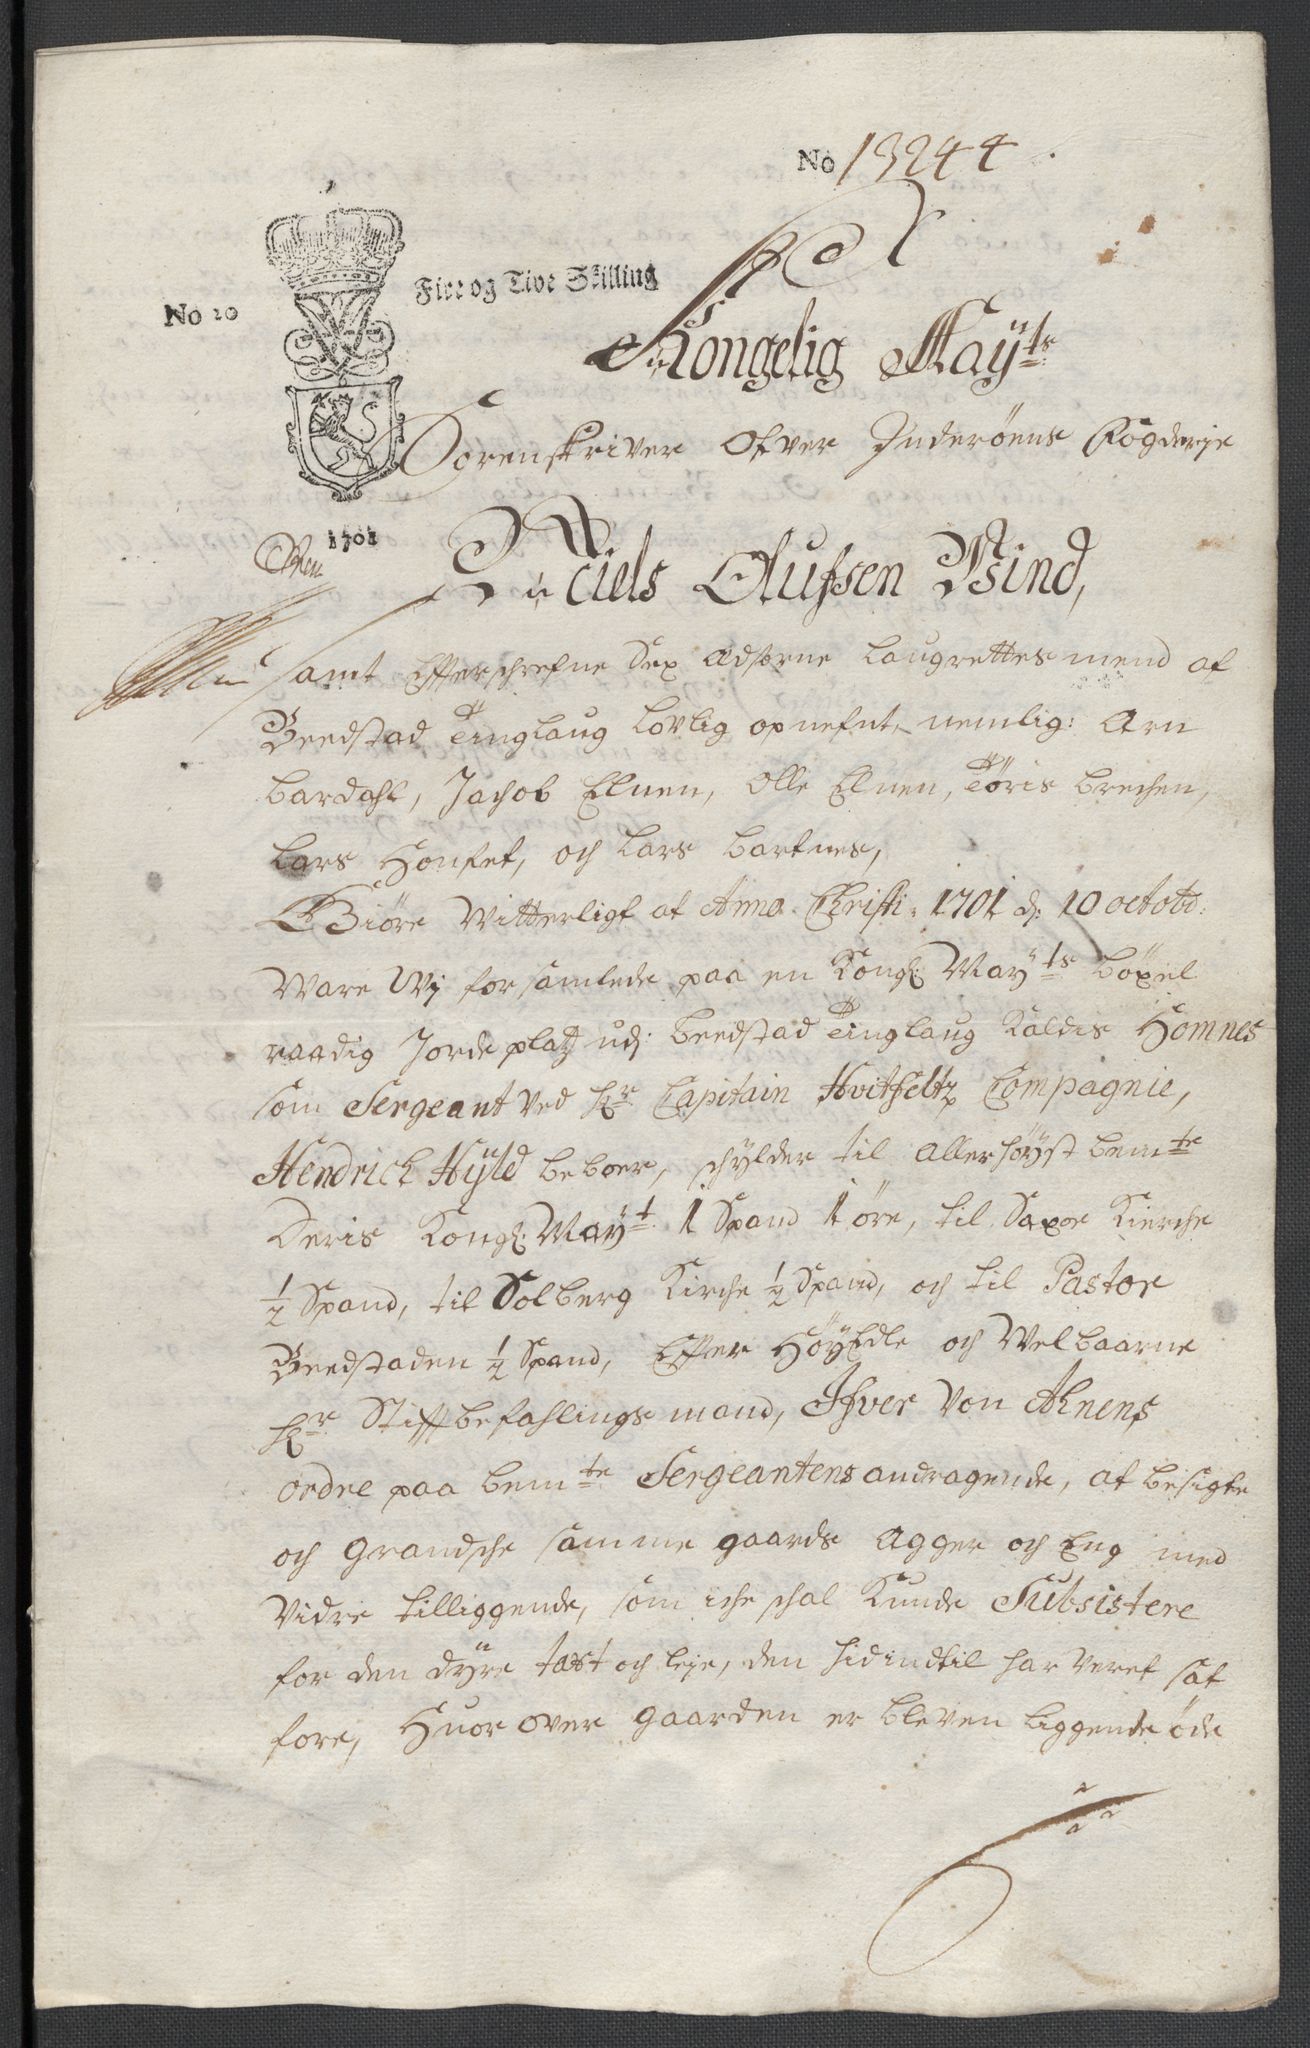 No 13244
No 20
Fire og Tive Skilling
1701
Kongelig Mayts
Sorenskriver Ofver Inderöens Fögderje
Niels Olufsen Wind,
samt Efterschrefne Sex Adsorne Laugrettes mend af
Beedstad Tinglaug Lovlig opnefnt, nemlig: Arn
bardahl, Jachob Elnen, Olle Elnen, Töris brechen,
Lars Honset, och Lars bartnes,
Giöre Witterligt at Anno Christi: 1701 d: 10 octobr:
Ware Wj forsamlede paa en Kongl: Mayts böxel
raadig Jordeplatz udj beedstad Tinglaug Kaldis Homnes
som Sergeant ved Hr Capitain Hvitfeltz Compagnie,
Hendrick Hÿld beboer, schylder til Allerhöyst bemte
Deris Kongl: Mayt 1 Spand 1 öre, til Saxor Kierche
1/2 Spand, til Solberg Kirche 1/2 Spand, och til Pastor
Beedstaden 1/2 Spand, Efter HöyEdle och Welbaarne
Hr Stiftbefahlings mand, Ifver Von Ahnens
ordre paa bemte Sergeantens andragende, at besigte
och Grandsche samme gaards Agger och Eng med
Vidre tilliggende, som iche schal Kunde Subsistere
for den dyre taxt och leje, den hidindtil har veret sat
fore, Huor over gaarden er bleven liggende öde